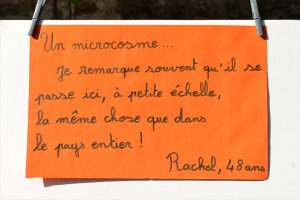 Un microcosme...
Je remarque souvent qu'il se
passe ici, à petite échelle,
la même chose que dans
le pays entier !
Rachel, 48 ans